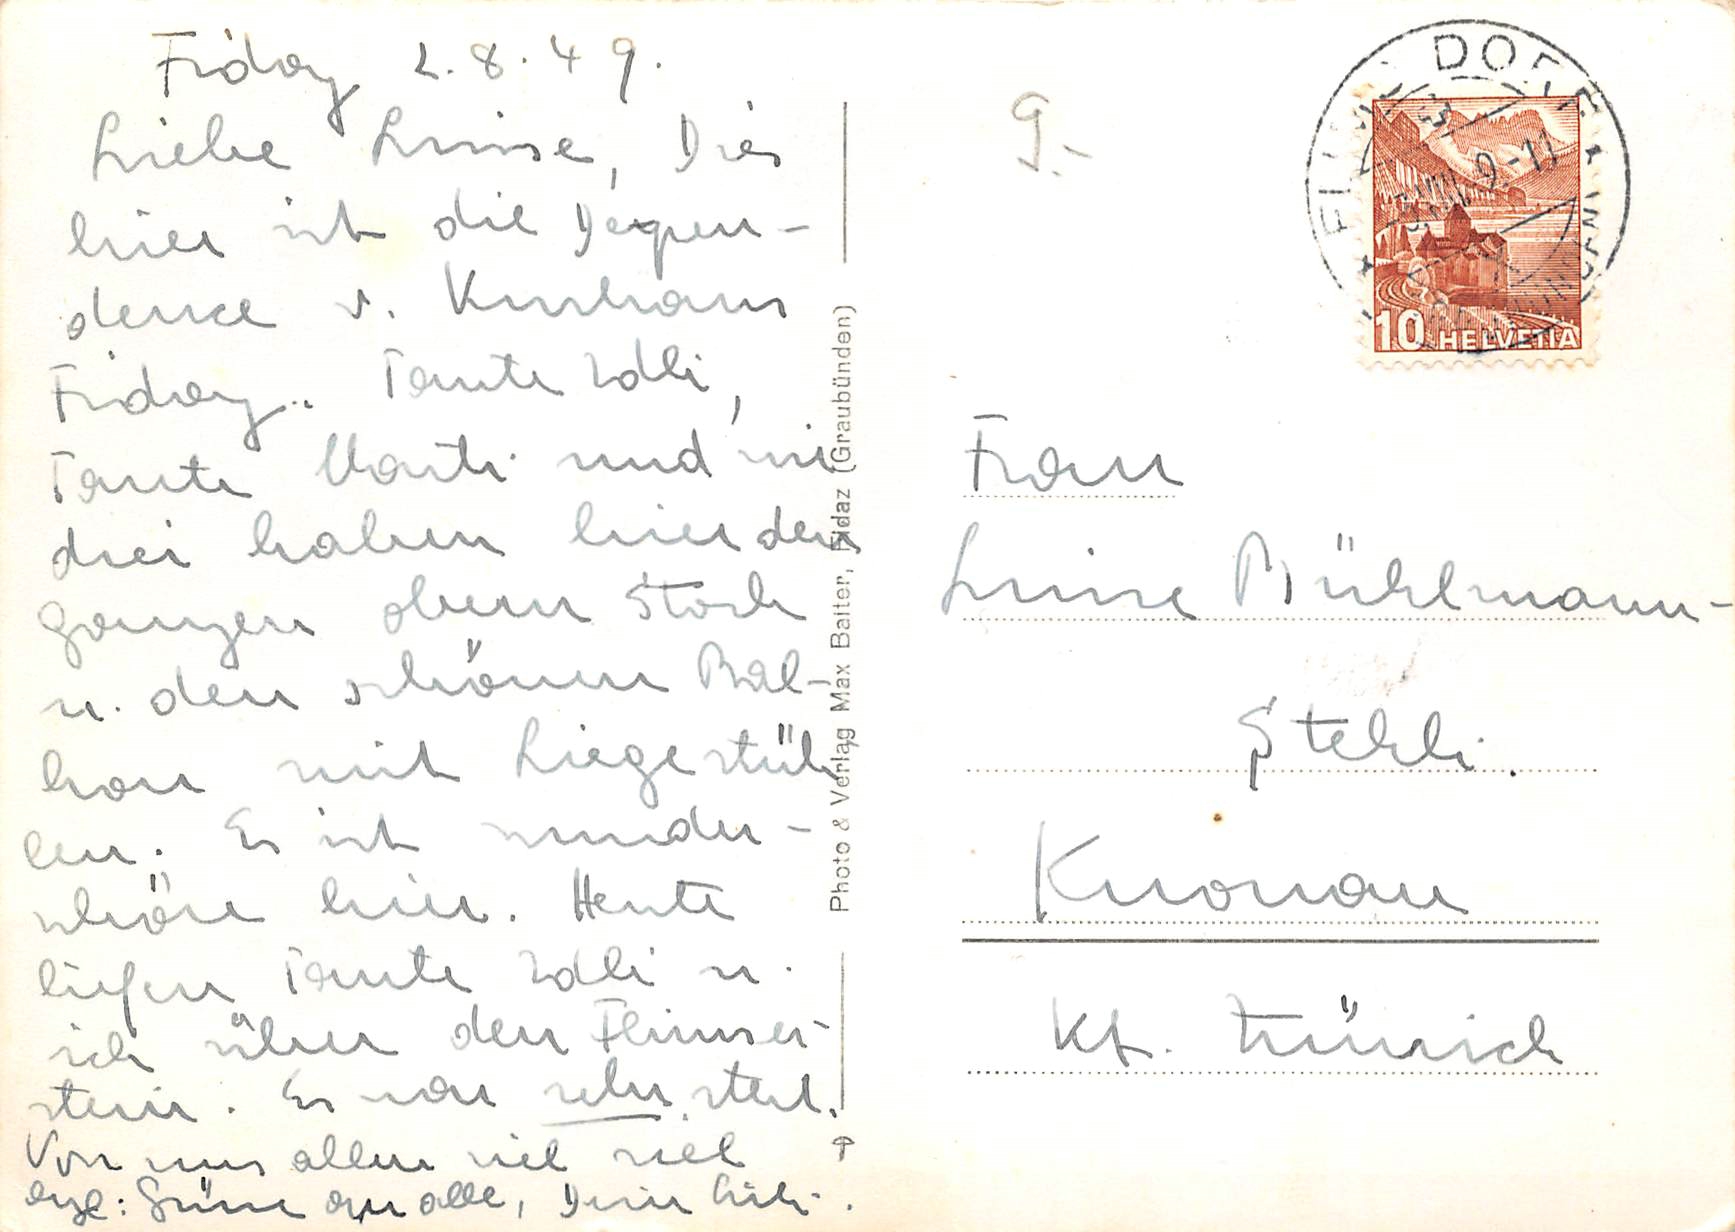 Fidaz 2.8.49.
Liebe Luise, Dies
hier ist die Depen-
dence v. Kurhaus
Fidaz. Tante Idli,
Tante Marti und wir
drei haben hier den
ganzen obern Stock
u. den schönen Bal-
kon mit Liegestüh-
len. Es ist wunder-
schön hier. Heute
liefen Tante Idli u.
ich über den Flimser-
stein. Es war sehr steil.
Von uns allen viel viel
Grüsse an alle, Dein
Photo & Verlag Max Baiter, Fidaz (Graubünden)
9.-
DORF
9.-11
10 HELVETIA
Frau
Luise Bühlmann-
Stehli.
Knonau
Kt. Zürich